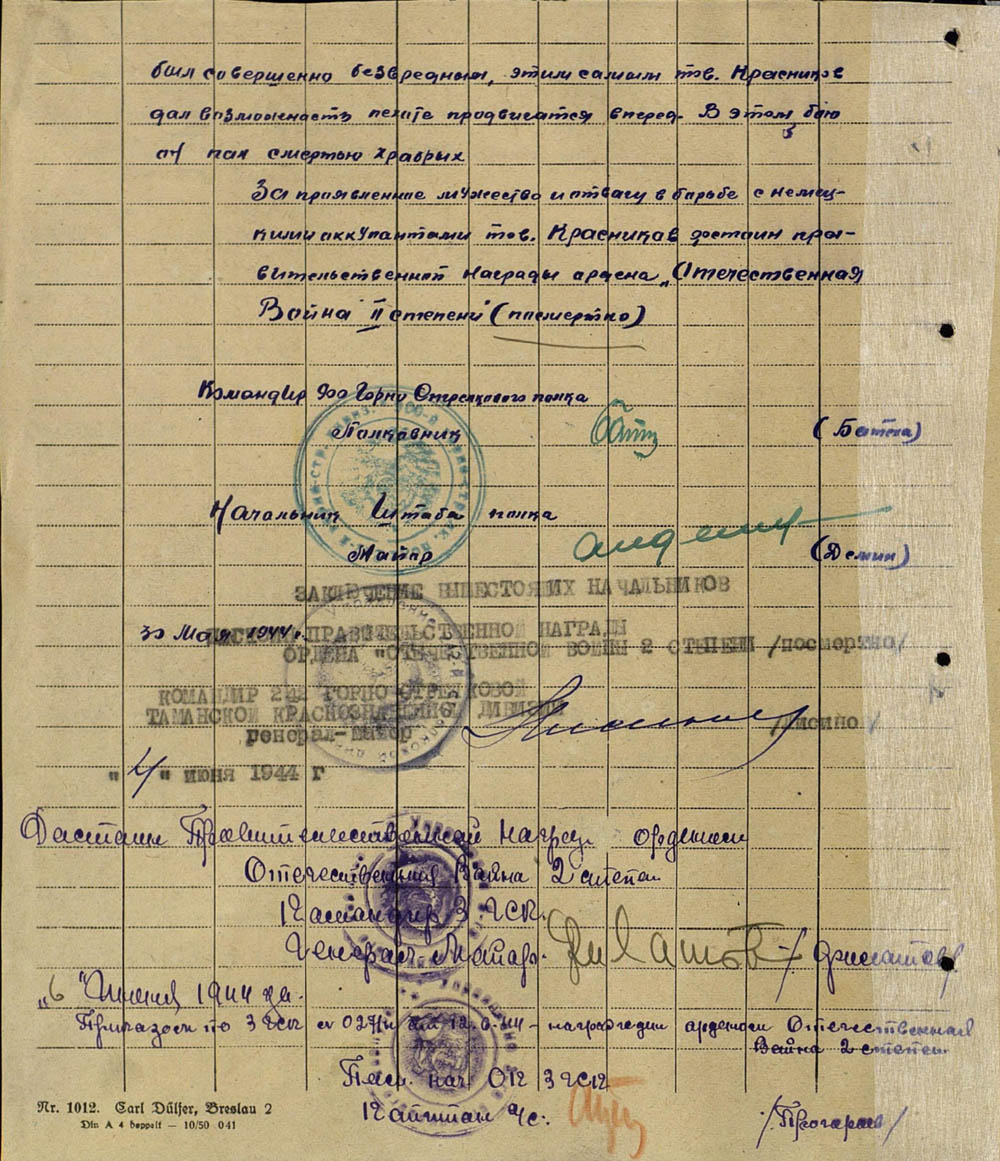 был совершенно безвредным, этим самым тов. Красников
дал возможность пехоте продвигатся вперед. В этом бою
он пал смертью храбрых
За проявленное мужество и отвагу в борьбе с немец-
кими аккупантами тов. Красников достоин пра-
вительственной награды ордена „Отечественная
Война II степени" (посмертно)
Командир 900 Горно Стрелкового полка
Полковник (Батла)
Начальник Штаба полка
Майор (Демин)
ЗАКЛЮЧЕНИЕ ВЫШЕСТОЯЩИХ НАЧАЛЬНИКОВ
30 Мая 1944г.
ДОСТОИН ПРАВИТЕЛЬСТВЕННОЙ НАГРАДЫ
ОРДЕНА "ОТЕЧЕСТВЕННОЙ ВОЙНЫ 2 СТЕПЕНИ /посмертно/
КОМАНДИР 242 ГОРНО СТРЕЛКОВОЙ
ТАМАНСКОЙ КРАСНОЗНАМЕННОЙ ДИВИЗИИ
генерал-майор /Лисинов/
"4" июня 1944 г
Достоин Правительственной наград. орденом
Отечественная Война 2 степен
Командир 3 ГСК.
Генерал Майор. /Филатов/
„6" Июня 1944 года.
Приказом по 3 ГСК от 12.6.44 - награжден орденом Отечественная
Война 2 степен
3 ГСК
Капитан а/с.
Nr. 1012. Carl Dülfer, Breslau 2
Din A 4 doppelt — 10/50 041